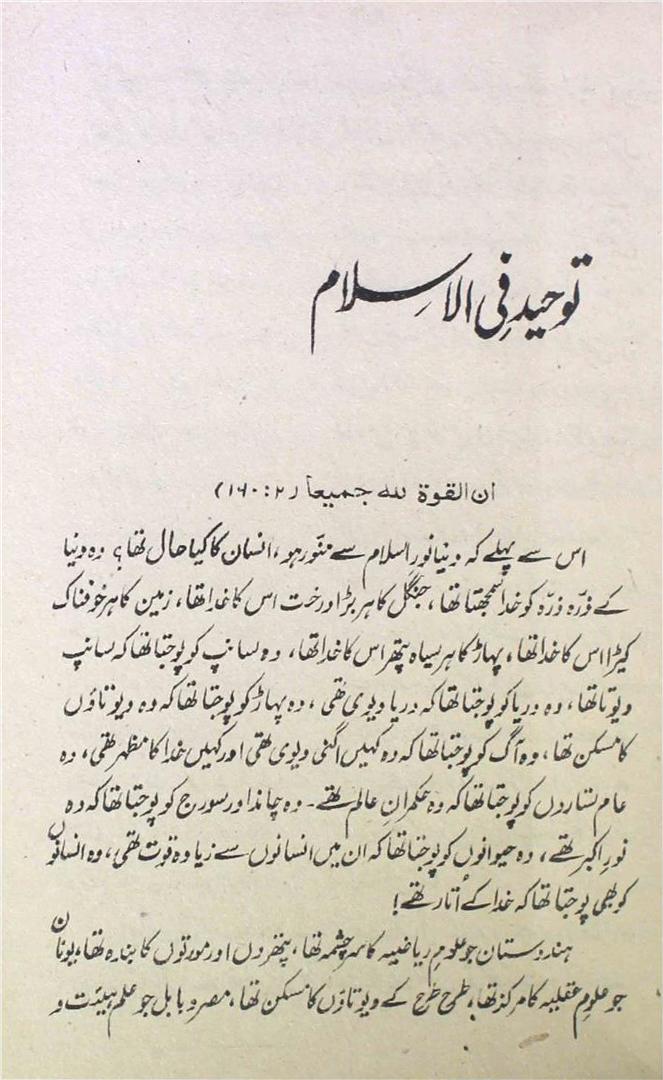 توحید فی الاسلام
ان القوة لله جمیعا (۲:۱۶۰)
اس سے پہلے کہ دنیا نور اسلام سے منّور ہو، انسان کا کیا حال تھا؟ وہ دنیا
کے ذرّہ ذرّہ کو خدا سمجھتا تھا، جنگل کا ہر بڑا درخت اس کا خدا تھا، زمین کا ہر خوفناک
کیڑا اس کا خدا تھا، پہاڑ کا ہر سیاہ پتھر اس کا خدا تھا، وہ سانپ کو پوجتا تھا کہ سانپ
دیوتا تھا، وہ دریا کو پوجتا تھا کہ دریا دیوی تھی، وہ پہاڑ کو پوجتا تھا کہ وہ دیوتاؤں
کا مسکن تھا، وہ آگ کو پوجتا تھا کہ وہ کہیں اگنی دیوی تھی اور کہیں خدا کا مظہر تھی، وہ
عام ستاروں کو پوجتا تھا کہ وہ حکمرانِ عالم تھے۔ وہ چاند اور سورج کو پوجتا تھا کہ وہ
نورِ اکبر تھے، وہ حیوانوں کو پوجتا تھا کہ ان میں انسانوں سے زیادہ قوت تھی، وہ انسانوں
کو بھی پوجتا تھا کہ خدا کے اُتار تھے!
ہندوستان جو علومِ ریاضیہ کا سرچشمہ تھا، پتھروں اور مورتوں کا بندہ تھا، یونان
جو علومِ عقلیہ کا مرکز تھا، طرح طرح کے دیوتاؤں کا مسکن تھا، مصر و بابل جو علم ہیئت و